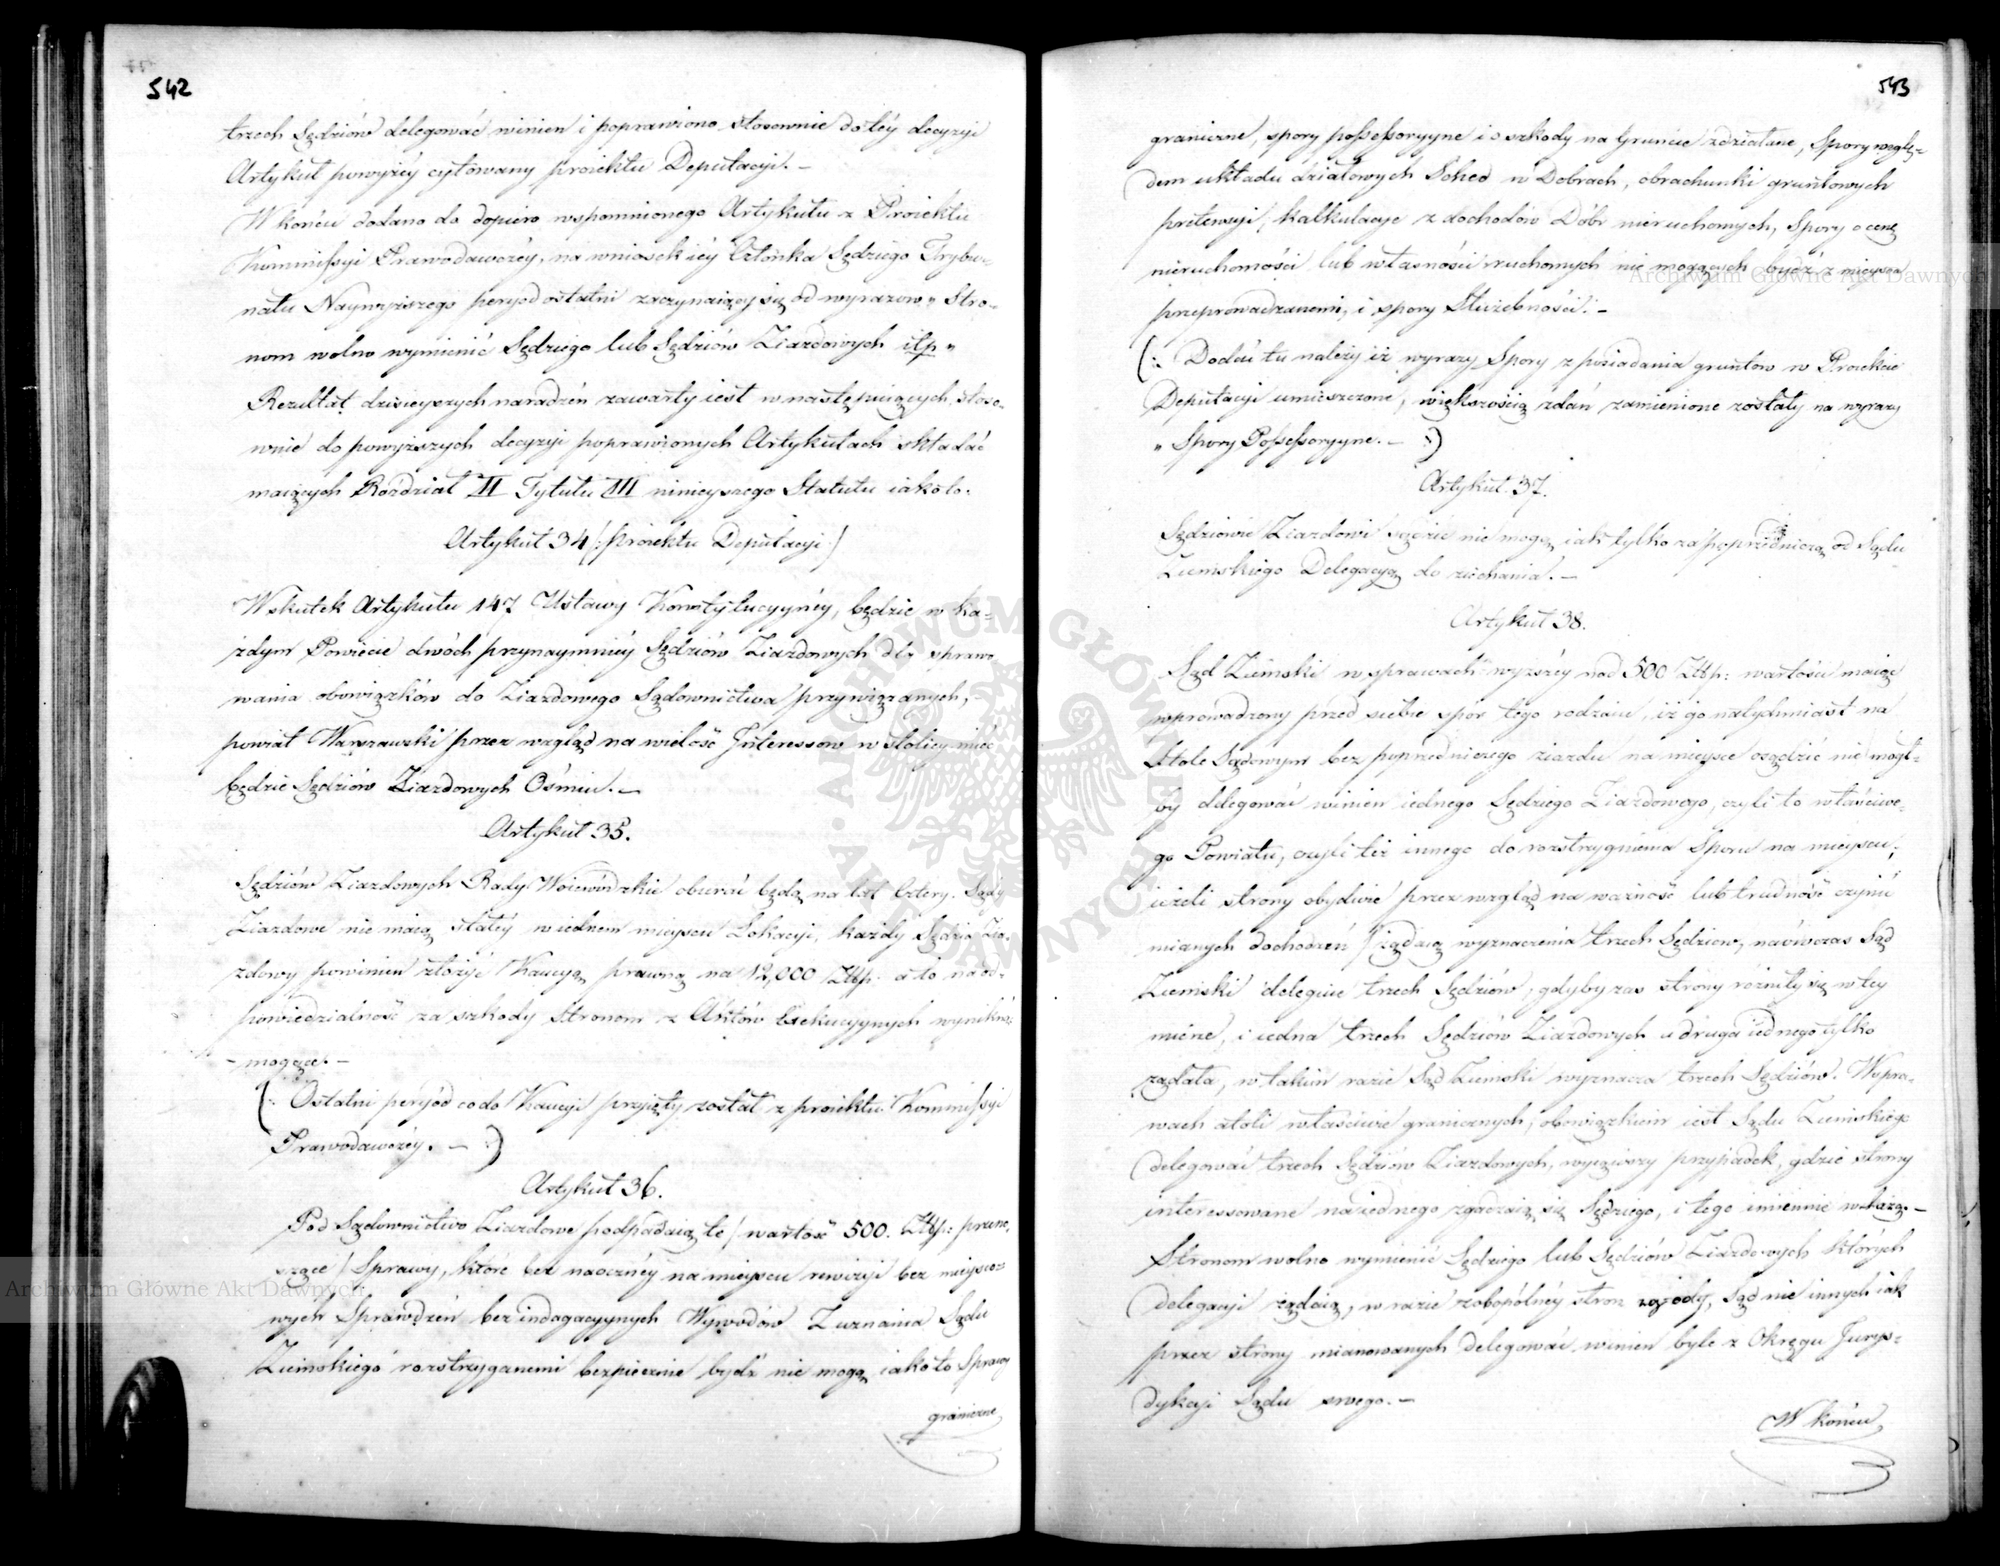 542
trzech Sędziów delegować winien i poprawiono stosownie do téy decyzyi
Artykuł powyżéy cytowany proiektu Deputacyi. –
W końcu dodano do dopiero wspomnionego Artykułu z Proiektu
Kommissyi Prawodawczéy, na wniosek iéy Członka Sędziego Trybu-
nału Naywyższego peryod ostatni zaczynaiący się od wyrazow „ Stro-
nom wolno wymienić Sędziego lub Sędziów Ziazdowych itp „
Rezultat dzisieyszych naradzeń zawarty iest w następuiących, stoso-
wnie do powyższych decyzyi poprawionych Artykułach składać
maiących Rozdział II Tytułu III ninieyszego Statutu iako to.
Artykuł 34 /: proiektu Deputacyi :/
Wskutek Artykułu 147 Ustawy Konstytucyynéy, będzie w ka-
żdym Powiecie dwóch przynaymniéy Sędziów Ziazdowych dla sprawo
wania obowiązków do Ziazdowego Sądownictwa przywiązanych,
powiat Warszawski przez wzgląd na wielość Interessow w stolicy mieć
będzie Sędziów Ziazdowych Ośmiu. –
Artykuł 35.
Sędziów Ziazdowych Rady Woiewódzkie obierać będą na lat Cztery. Sądy
Ziazdowe nie maią stałéy w iednem mieyscu Lokacyi, każdy Sędzia Zia-
zdowy powinien złożyć Kaucyą prawną na 12,000 Złłp: a to na od-
powiedzialność za szkody Stronom z Aktów Exekucyynych wyniknąć
– mogące. –
(: Ostatni peryód co do Kaucyi przyięty został z proiektu Kommissyi
Prawodawczéy. – :)
Artykuł 36.
Pod Sądownictwo Ziazdowe podpadaią te / wartość 500. Złłp: przeno-
szące / Sprawy, które bez naocznéy na mieyscu rewizyi bez mieysco-
wych Sprawdzeń bez indagacyynych Wywodów Zuznania Sądu
Ziemskiego rozstrzyganemi bezpiecznie bydź nie mogą iako to Sprawy
graniczne
543
graniczne, spory possessoryyne i o szkody na Gruncie zdziałane, Spory wzglę-
dem układu działowych Sched w Dobrach, obrachunki gruntowych
pretensyi, kalkulacye z dochodów Dóbr nieruchomych, Spory o cenę
nieruchomości lub własności ruchomych nie mogących bydź z mieysca
przeprowadzanemi, i spory Służebności. –
(: Dodać tu należy iż wyrazy Spory z posiadania gruntow w Proiekcie
Deputacyi umieszczone, większością zdań zamienione zostały na wyrazy
„ Spory Possessoryyne. – :)
Artykuł. 37.
Sędziowie Ziazdowi sądzić nie mogą iak tylko za poprzedniczą od Sądu
Ziemskiego Delegacyą do ziechania. –
Artykuł 38.
Sąd Ziemski w sprawach wyższéy nad 500 Złłp: wartości maiąc
wprowadzony przed siebie spór tego rodzaiu, iż go natychmiast na
Stole Sądowym bez poprzedniczego ziazdu na mieysce osądzić nie mógł-
by delegować winien iednego Sędziego Ziazdowego, czyli to właściwe-
go Powiatu, czyli też innego do rozstrzygnienia Sporu na mieyscu;
ieżeli strony obydwie przez wzgląd na ważność lub trudność czynić
mianych dochodzeń żądaią wyznaczenia trzech Sędziow, naówczas Sąd
Ziemski deleguie trzech Sędziów, gdyby zas strony różniły się w tey
mierze, i iedna trzech Sędziów Ziazdowych a druga iednego tylko
żądała, w takim razie Sąd Ziemski wyznacza trzech Sędziów. W spra-
wach atoli właściwie granicznych, obowiązkiem iest Sądu Ziemskiego
delegować trzech Sędziów Ziazdowych, wyiąwszy przypadek, gdzie strony
interessowane na iednego zgadzaią się Sędziego, i tego imiennie wskażą. –
Stronom wolno wymienić Sędziego lub Sędziów Ziazdowych których
delegacyi żądaią, w razie zobopólnéy stron zgody, Sąd nie innych iak
przez strony mianowanych delegować winien byle z Okręgu Jurys-
dykcyi Sądu swego. –
W końcu
Archiwum Główne Akt Dawnych
Archiwum Główne Akt Dawnych
ARCHIWUM GŁÓWNE AKT DAWNYCH